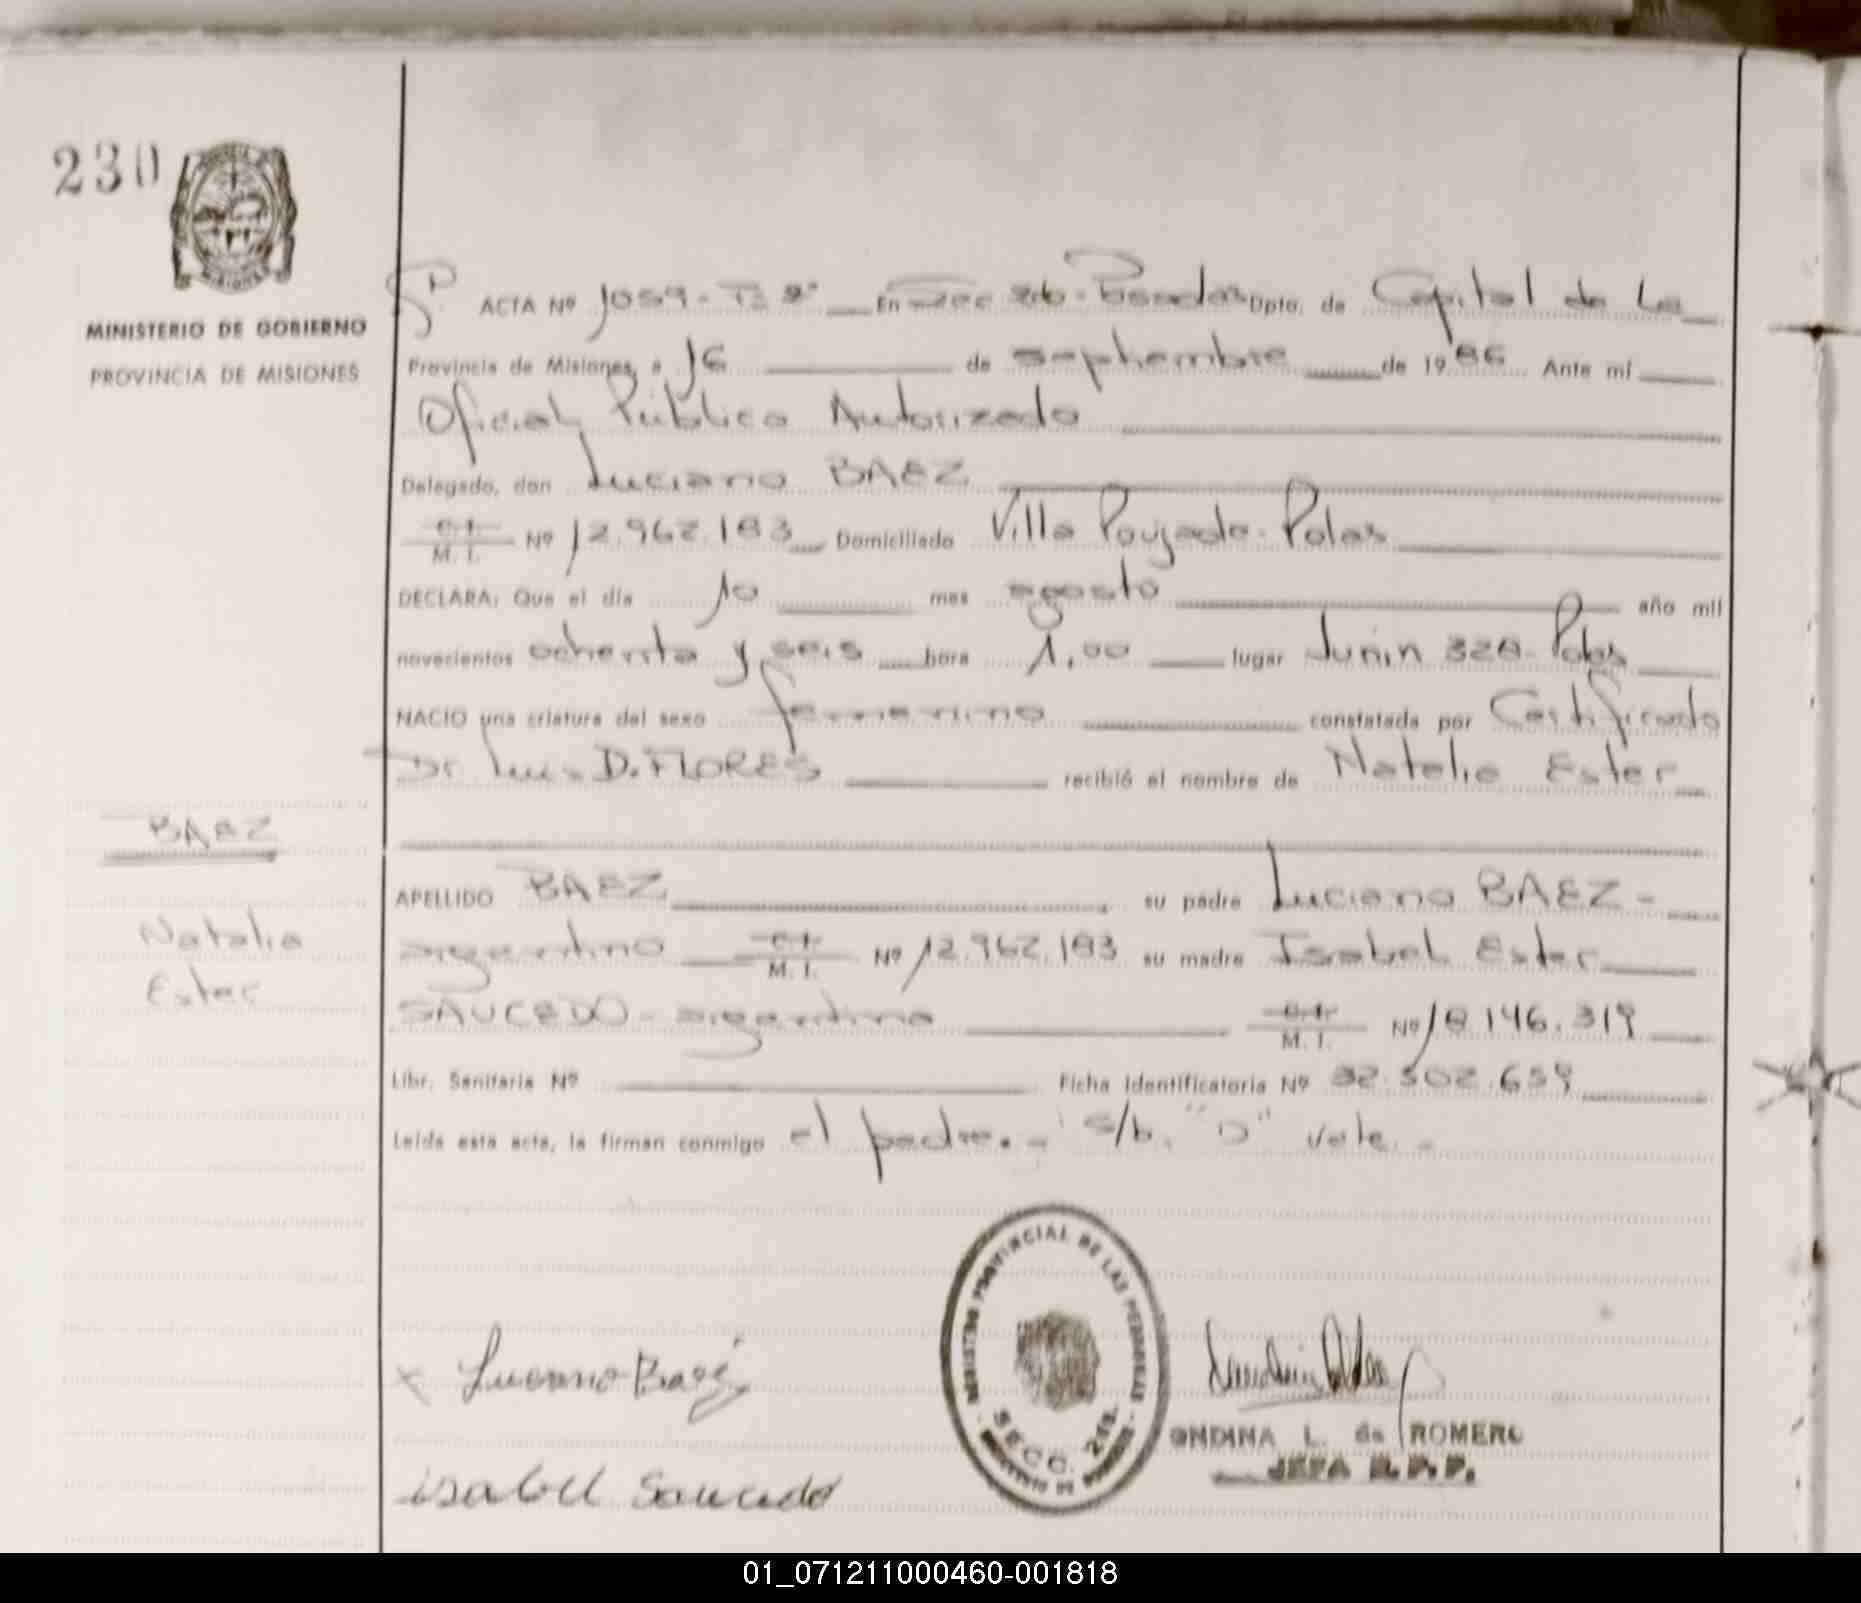 230
MINISTERIO DE GOBIERNO
PROVINCIA DE MISIONES
ACTA Nº 1059 - Tº 2º En Secc 2da - Posadas Dpto. de Capital de La
Provincia de Misiones, a 16 de septiembre de 1986 Ante mí
Oficial Público Autorizado
Delegado, don Luciano BAEZ
C.I. M. I. Nº 12.962.183 Domiciliado Villa Poujade - Pdas
DECLARA: Que el día 10 mes agosto año mil
novecientos ochenta y seis hora 1,00 lugar Junín 328 - Pdas
NACIO una criatura del sexo femenino constatada por Certificado
Dr Luis D. FLORES recibió el nombre de Natalia Ester
BAEZ
APELLIDO BAEZ su padre Luciano BAEZ -
Natalia
argentino C.I. M. I. Nº 12.962.183 su madre Isabel Ester
Ester
SAUCEDO - argentina C.I. M. I. Nº 18.146.319
Libr. Sanitaria Nº Ficha Identificatoria Nº 32.502.659
Leída esta acta, la firman conmigo el padre. - s/b. "D" vale. -
REGISTRO PROVINCIAL DE LAS PERSONAS
SECC. 2da.
x Luciano Baez
ONDINA L. de ROMERO
JEFA R.P.P.
isabel Saucedo
01_071211000460-001818